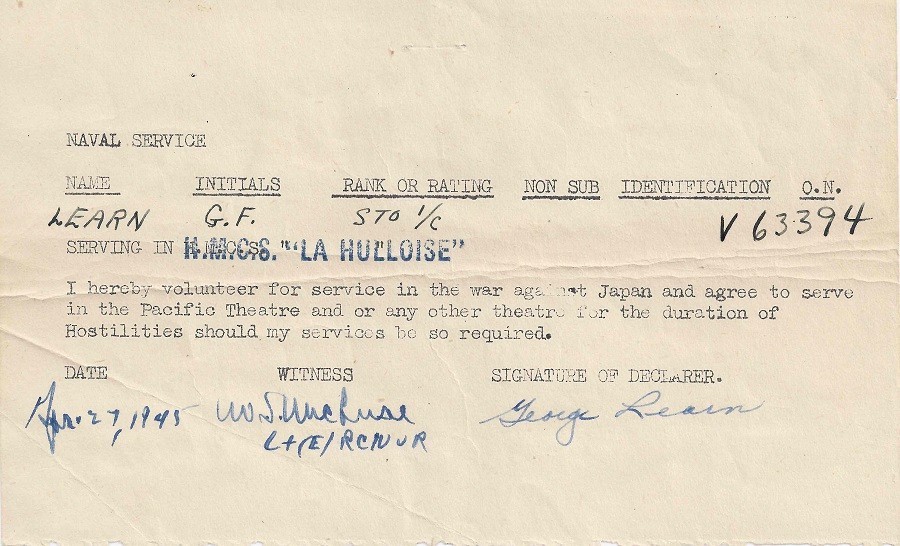 NAVAL SERVICE
NAME INITIALS RANK OR RATING NON SUB IDENTIFICATION O.N.
LEARN G.F. STO 1/C V 63394
SERVING IN H.M.C.S. "LA HULLOISE"
I hereby volunteer for service in the war against Japan and agree to serve
in the Pacific Theatre and or any other theatre for the duration of
Hostilities should my services be so required.
DATE WITNESS SIGNATURE OF DECLARER.
Apr. 27, 1945 George Learn
Lt (E) RCNVR